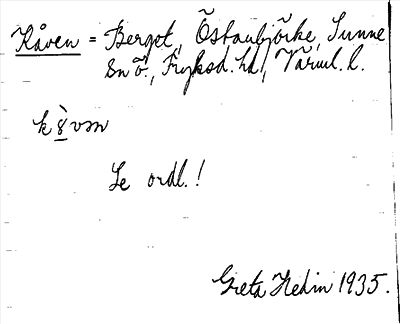 Kåven = Berget, Östanbjörke, Sunne
sn ö., Fryksd. hd, Värml. l.
k8̀vən
Se ordl.!
Greta Hedin 1935.